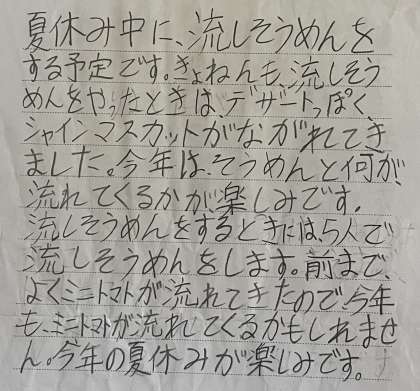 夏休み中に、流しそうめんを
する予定です。きょねんも、流しそう
めんをやったときは、デザートっぽく、
シャインマスカットがながれてき
ました。今年は、そうめんと何が、
流れてくるかが、楽しみです。
流しそうめんをするときには、5人で
流しそうめんをします。前まで、
よくミニトマトが流れてきたので、今年
も、ミニトマトが流れてくるかもしれませ
ん。今年の夏休みが楽しみです。